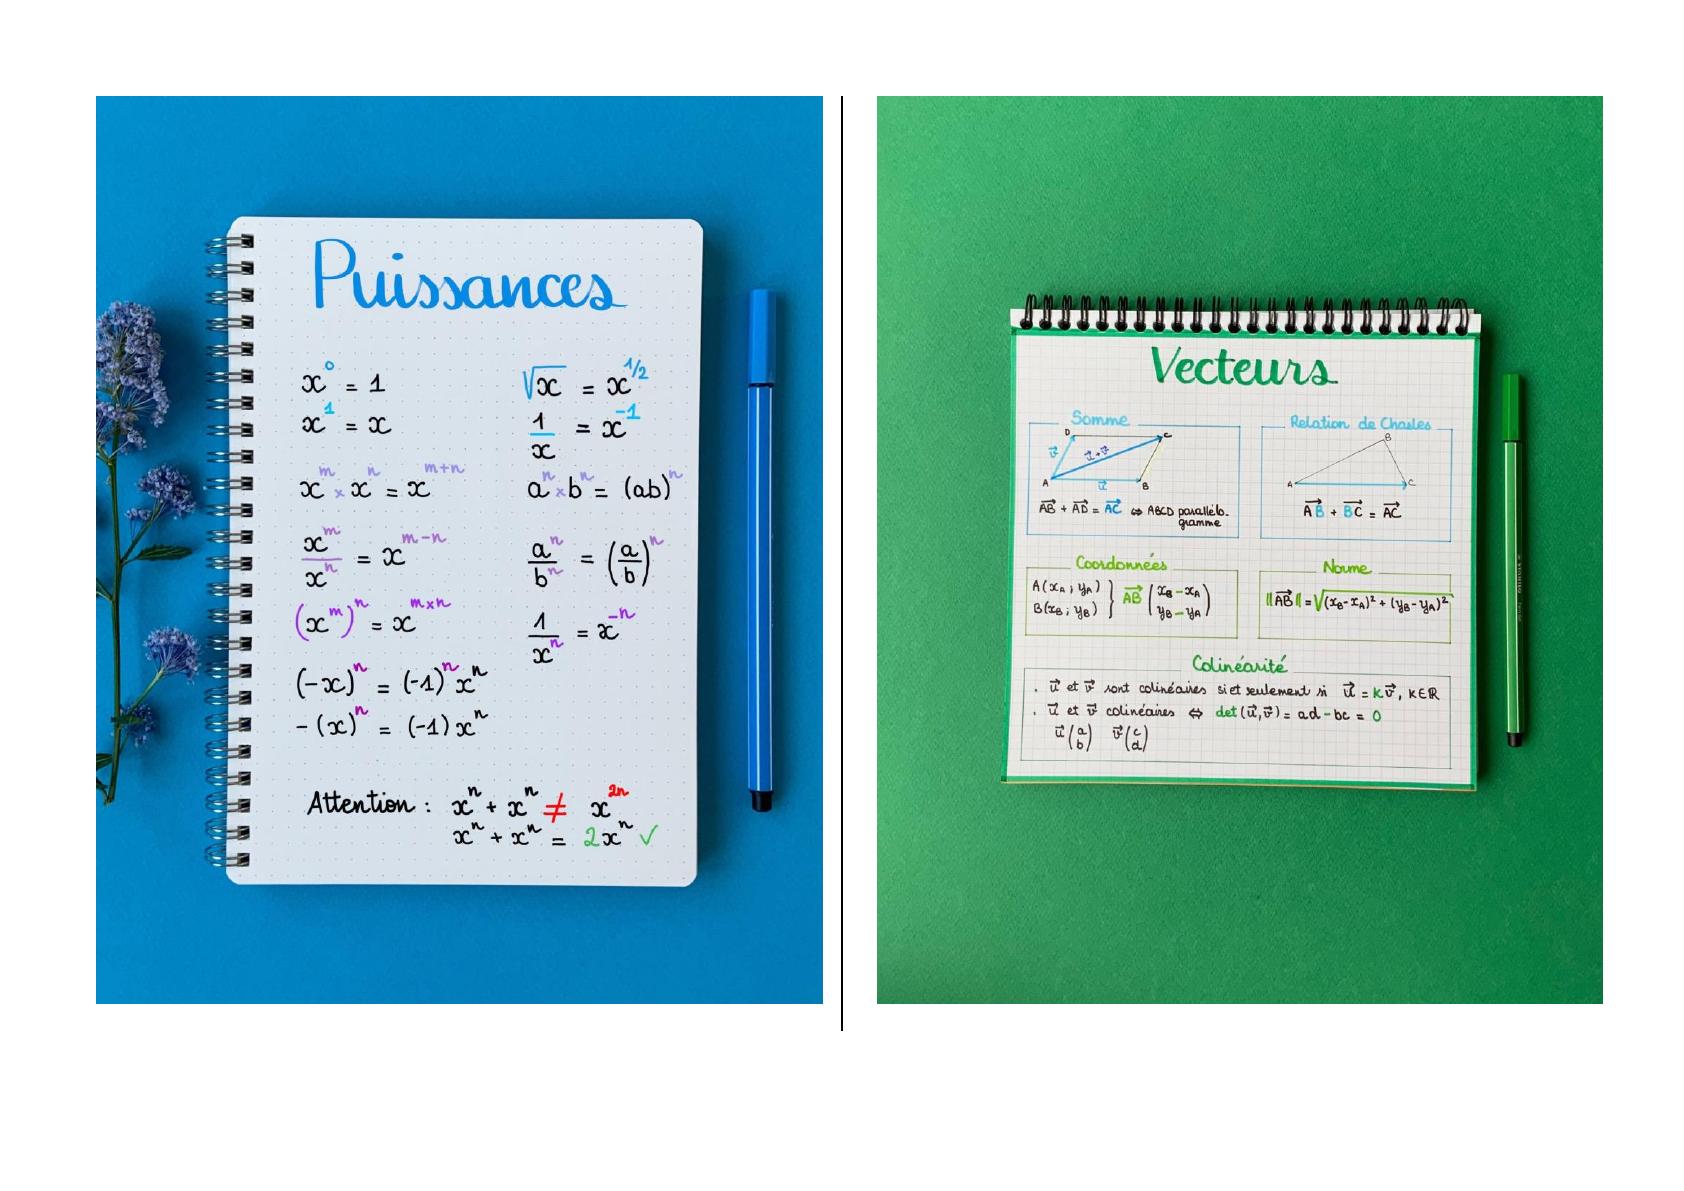 Puissances
x⁰ = 1
x¹ = x
xᵐ × xⁿ = xᵐ⁺ⁿ
xᵐ/xⁿ = xᵐ⁻ⁿ
(xᵐ)ⁿ = xᵐˣⁿ
(-x)ⁿ = (-1)ⁿ xⁿ
-(x)ⁿ = (-1) xⁿ
√x = x^1/2
1/x = x⁻¹
aⁿ × bⁿ = (ab)ⁿ
aⁿ/bⁿ = (a/b)ⁿ
1/xⁿ = x⁻ⁿ
Attention : xⁿ + xⁿ ≠ x²ⁿ
xⁿ + xⁿ = 2xⁿ ✓
Vecteurs
Somme
D C
v⃗ u⃗+v⃗
A u⃗ B
AB⃗ + AD⃗ = AC⃗ ⇔ ABCD parallélo-
gramme
Relation de Chasles
B
A C
AB⃗ + BC⃗ = AC⃗
Coordonnées
A(x_A ; y_A)
B(x_B ; y_B) } AB⃗ (x_B - x_A
y_B - y_A)
Norme
||AB⃗|| = √(x_B - x_A)² + (y_B - y_A)²
Colinéarité
. u⃗ et v⃗ sont colinéaires si et seulement si u⃗ = kv⃗, k∈ℝ
. u⃗ et v⃗ colinéaires ⇔ det(u⃗,v⃗) = ad - bc = 0
u⃗(a b) v⃗(c d)